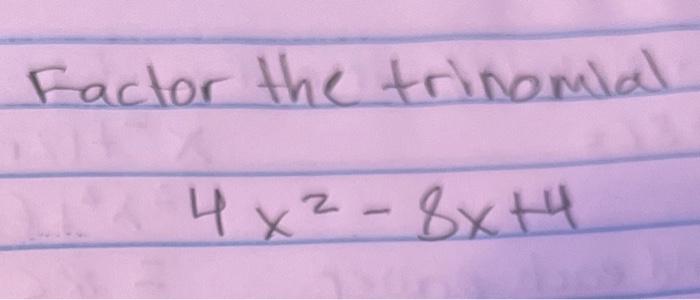 Factor the trinomial
4x² - 8x+4